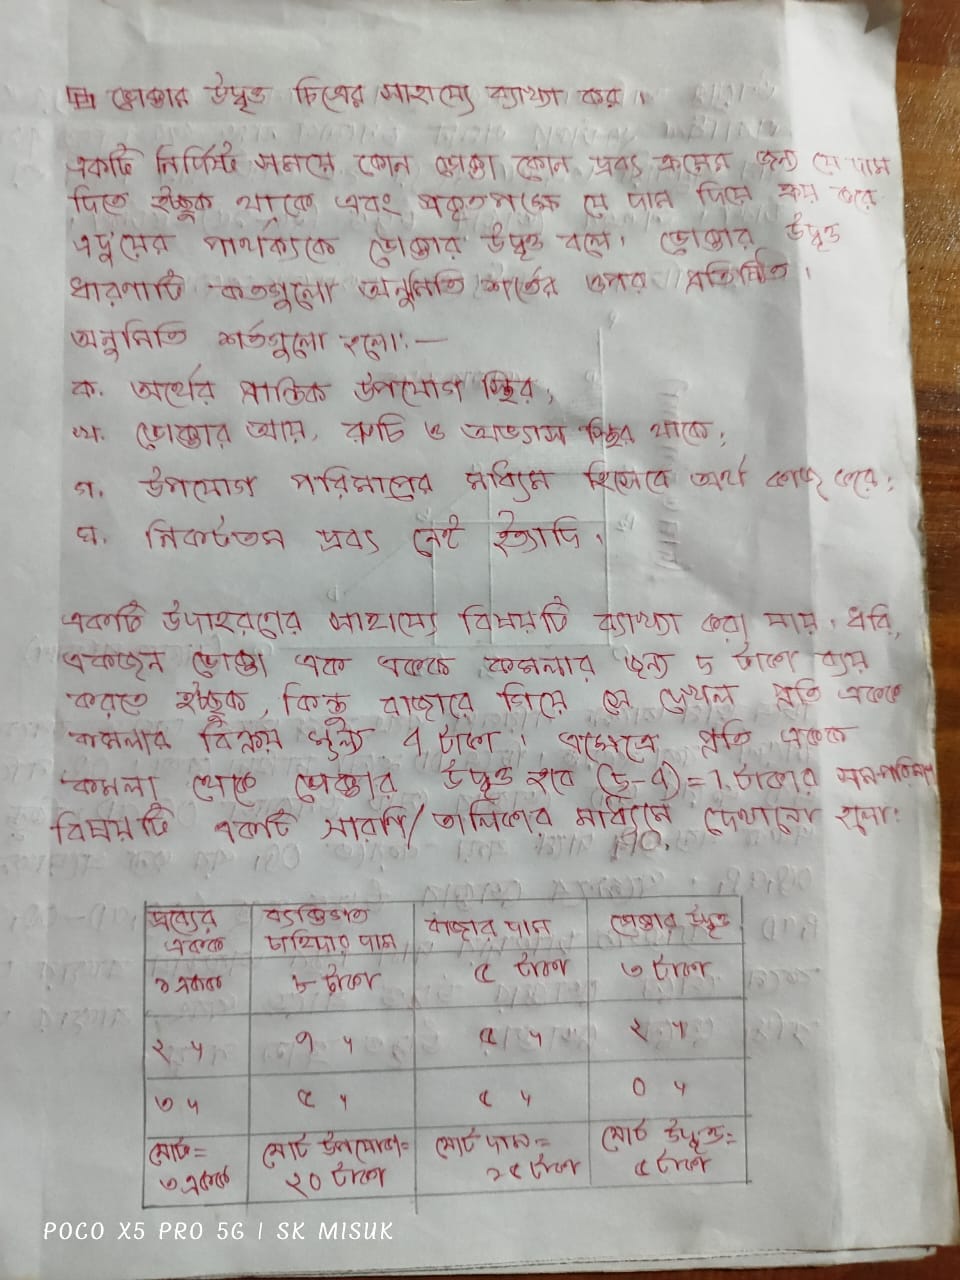 ভোক্তার উদ্বৃত্ত চিত্রের সাহায্যে ব্যাখ্যা কর।
একটি নির্দিষ্ট সময়ে কোন ভোক্তা কোন দ্রব্য ক্রয়ের জন্য যে দাম
দিতে ইচ্ছুক থাকে এবং প্রকৃতপক্ষে যে দাম দিয়ে ক্রয় করে
এদুয়ের পার্থক্যকে ভোক্তার উদ্বৃত্ত বলে। ভোক্তার উদ্বৃত্ত
ধারণাটি কতগুলো অনুমিতি শর্তের ওপর প্রতিষ্ঠিত।
অনুমিতি শর্তগুলো হলো:—
ক. অর্থের প্রান্তিক উপযোগ স্থির;
খ. ভোক্তার আয়, রুচি ও অভ্যাস স্থির থাকে;
গ. উপযোগ পরিমাপের মাধ্যম হিসেবে অর্থ কাজ করে;
ঘ. নিকটতম দ্রব্য নেই ইত্যাদি।
একটি উদাহরণের সাহায্যে বিষয়টি ব্যাখ্যা করা যায়। ধরি,
একজন ভোক্তা এক একক কমলার জন্য ৮ টাকা ব্যয়
করতে ইচ্ছুক, কিন্তু বাজারে গিয়ে সে দেখল প্রতি একক
কমলার বিক্রয় মূল্য টাকা। এক্ষেত্রে প্রতি একক
কমলা থেকে ভোক্তার উদ্বৃত্ত হবে টাকার
বিষয়টি একটি সারণি/তালিকার মাধ্যমে দেখানো হলো:
দ্রব্যের একক ব্যক্তিগত চাহিদার দাম বাজার দাম ভোক্তার উদ্বৃত্ত
১ একক ৮ টাকা ৫ টাকা ৩ টাকা
২ ৭ ৫ ২
৩ ৫ ৫ ০
মোট= ৩ একক মোট উপযোগ= ২০ টাকা মোট দাম= ১৫ টাকা মোট উদ্বৃত্ত= ৫ টাকা
POCO X5 PRO 5G | SK MISUK